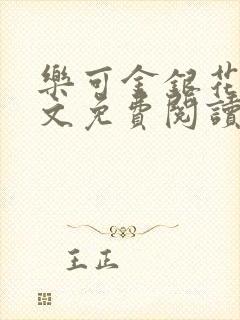 樂可金銀花
文免費閱讀
王正